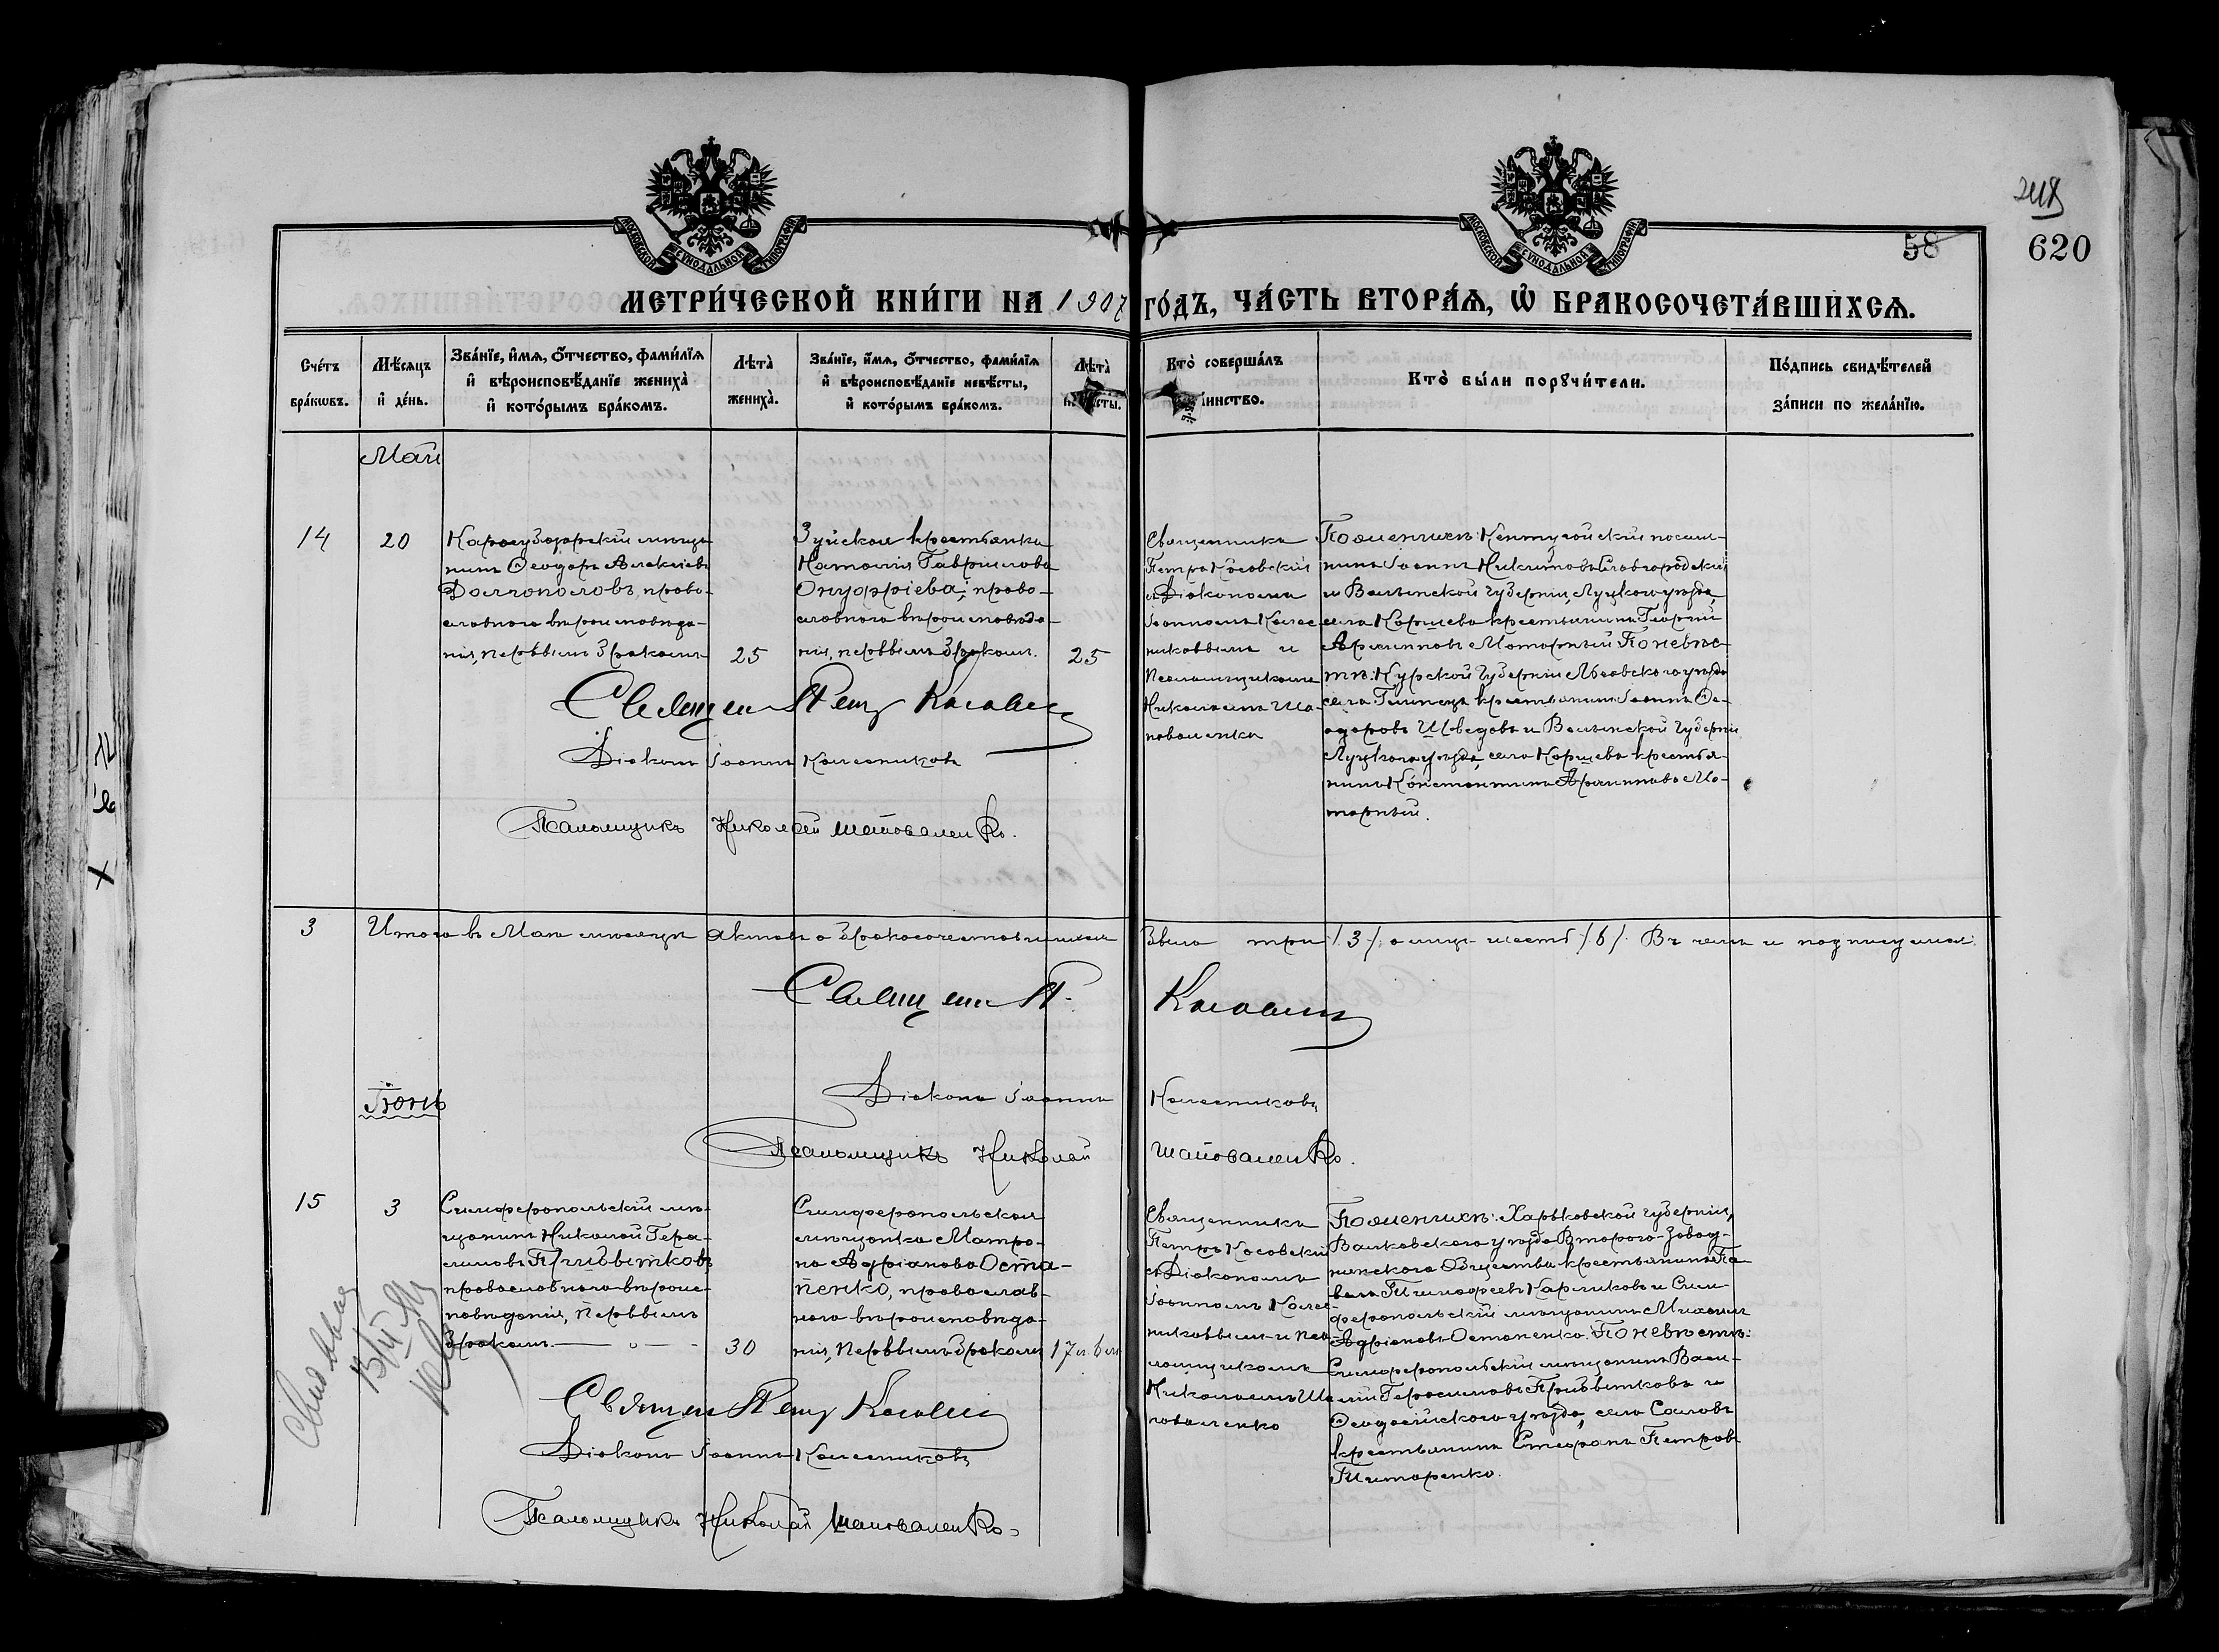 248
58
620
МОСКОВСКОЙ СѴНОДАЛЬНОЙ ТИПОГРАФІИ
МОСКОВСКОЙ СѴНОДАЛЬНОЙ ТИПОГРАФІИ
МЕТРИ́ЧЕСКОЙ КНИ́ГИ НА 1907 ГО́ДЪ, ЧА́СТЬ ВТОРА́Ѧ, Ѽ БРАКОСОЧЕТА́ВШИХСѦ.
Сче́тъ
бра́кѡвъ.
Мѣ́сяцъ
и҆ де́нь.
Зва́нїе, и҆́мѧ, ѻ҆́тчество, фами́лїѧ
и҆ вѣроисповѣ́данїе жениха̀
и҆ кото́рымъ бра́комъ.
Лѣта̀
жениха̀.
Зва́нїе, и҆́мѧ, ѻ҆́тчество, фами́лїѧ
и҆ вѣроисповѣ́данїе невѣ́сты,
и҆ кото́рымъ бра́комъ.
Лѣта̀
Кто̀ соверша́лъ
Кто̀ бы́ли порꙋчи́тели.
По́дпись свидѣ́телей
за́писи по жела́нїю.
Май
14
20
Карасубазарскій мѣща-
нинъ Ѳеодоръ Алексіевъ
Долгополовъ, право-
славнаго вѣроисповѣда-
нія, первымъ бракомъ
25
Зуйская крестьянка
Наталія Гавриилова
Онуфріева, право-
славнаго вѣроисповѣда-
нія, первымъ бракомъ.
25
Священникъ
Петръ Косовскій
съ Діакономъ
Іоанномъ Колес-
никовымъ и
Псаломщикомъ
Николаемъ Ша-
поваленко
По женихѣ: Кентугайскій поселя-
нинъ Іоаннъ Никитовъ Славгородскій
и Волынской Губерніи, Луцкаго уѣзда,
села Коршева крестьянинъ Георгій
Моторный По невѣс-
тѣ: Курской Губерніи Льговскаго уѣзда
села Глинца крестьянинъ Іоаннъ Ѳе-
одоровъ Шведовъ и Волынской Губерніи
Луцкаго уѣзда, села Коршева крестья-
нинъ Константинъ Мо-
торный.
Священ Петр Косовскій
Діаконъ Іоаннъ Колесниковъ
Псаломщикъ Николай Шаповаленко.
3
Итого въ Маѣ мѣсяцѣ актовъ о бракосочетавшихся было три /3/, а лицъ шесть /6/. Въ чемъ и подписуемся:
Священ П. Косовскій
Діаконъ Іоаннъ Колесниковъ
Псаломщикъ Николай Шаповаленко.
Іюнь
15
3
Симферопольскій мѣ-
щанинъ Николай Гера-
симовъ Привѣтковъ
православнаго вѣроис-
повѣданія, первымъ
бракомъ
30
Симферопольская
мѣщанка Матро-
на Адріанова Оста-
пенко, православ-
наго вѣроисповѣда-
нія, первымъ бракомъ
17 л. 6 м.
Священникъ
Петръ Косовскій
съ Діакономъ
Іоанномъ Колес-
никовымъ и Пса-
ломщикомъ
Николаемъ Ша-
поваленко
По женихѣ: Харьковской губерніи,
Валковскаго уѣзда Второго-
Общества крестьянинъ Па-
велъ Тимофеевъ Карпиковъ и Сим-
феропольскій мѣщанинъ Михаилъ
Адріановъ Остапенко. По невѣстѣ:
Симферопольскій мѣщанинъ Васи-
лій Герасимовъ Привѣтковъ и
Ѳеодосійскаго уѣзда, села
крестьянинъ Стефанъ Петровъ
Титаренко.
Священ Петр Косовскій
Діаконъ Іоаннъ Колесниковъ
Псаломщикъ Николай Шаповаленко.